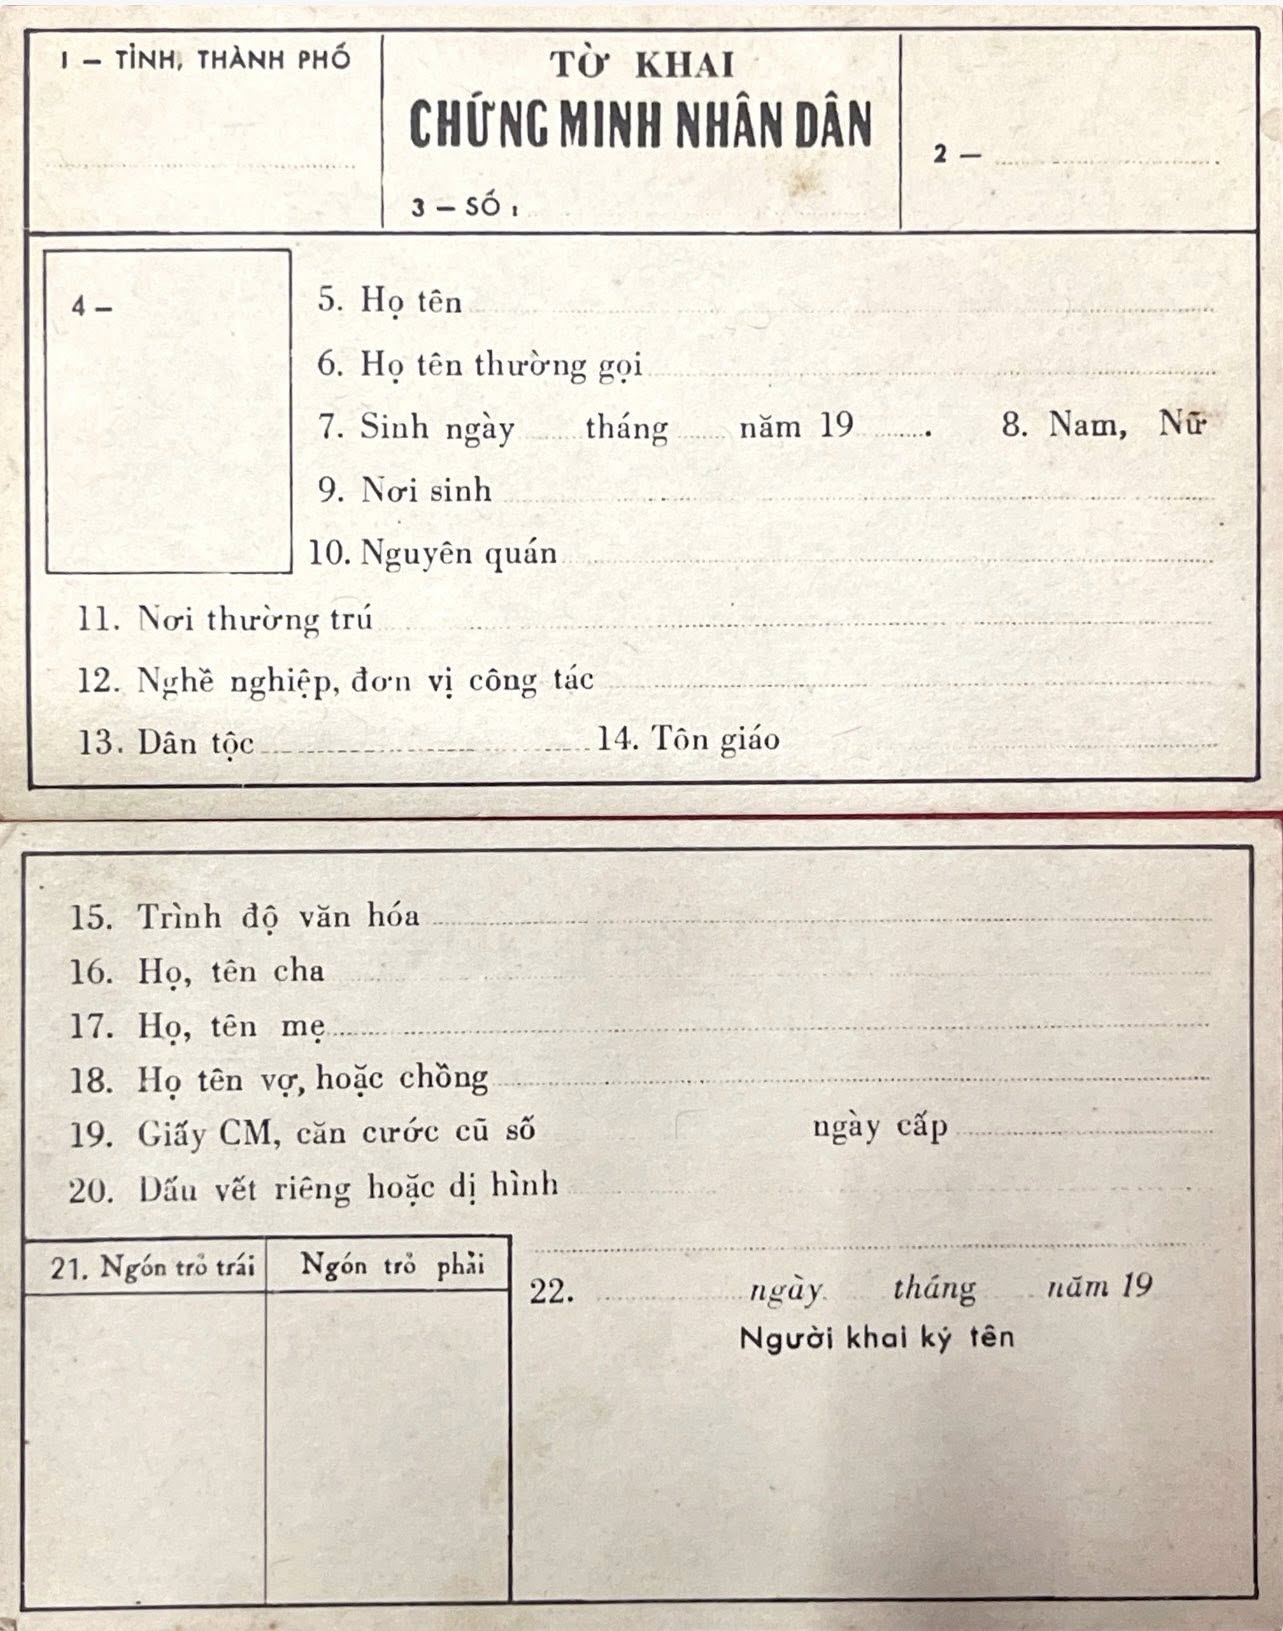 1 – TỈNH, THÀNH PHỐ
TỜ KHAI
CHỨNG MINH NHÂN DÂN
2 –
3 – SỐ :
4 –
5. Họ tên
6. Họ tên thường gọi
7. Sinh ngày tháng năm 19 . 8. Nam, Nữ
9. Nơi sinh
10. Nguyên quán
11. Nơi thường trú
12. Nghề nghiệp, đơn vị công tác
13. Dân tộc 14. Tôn giáo
15. Trình độ văn hóa
16. Họ, tên cha
17. Họ, tên mẹ
18. Họ tên vợ, hoặc chồng
19. Giấy CM, căn cước cũ số ngày cấp
20. Dấu vết riêng hoặc dị hình
21. Ngón trỏ trái Ngón trỏ phải
22. ngày tháng năm 19
Người khai ký tên